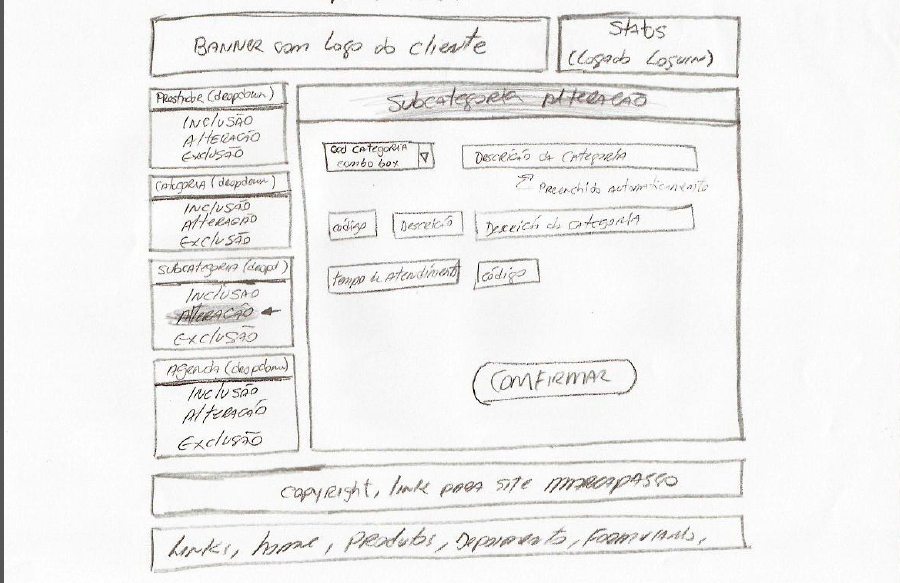 BANNER com Logo do cliente
Status
(Logado Loguin)
(dropdown)
INCLUSÃO
ALTERAÇÃO
EXCLUSÃO
CATEGORIA (dropdown)
INCLUSÃO
ALTERAÇÃO
EXCLUSÃO
SUBCATEGORIA (dropd)
INCLUSÃO
ALTERAÇÃO
EXCLUSÃO
AGENDA (dropdown)
INCLUSÃO
ALTERAÇÃO
EXCLUSÃO
SUBCATEGORIA ALTERAÇÃO
Cod CATEGORIA
combo box
DESCRIÇÃO da CATEGORIA
Preenchido automaticamente
código
Descrição
DESCRIÇÃO da CATEGORIA
tempo de Atendimento
código
CONFIRMAR
copyright, link para site MARCAPASSO
Links, home, Produtos, Depoimento, Formulario,